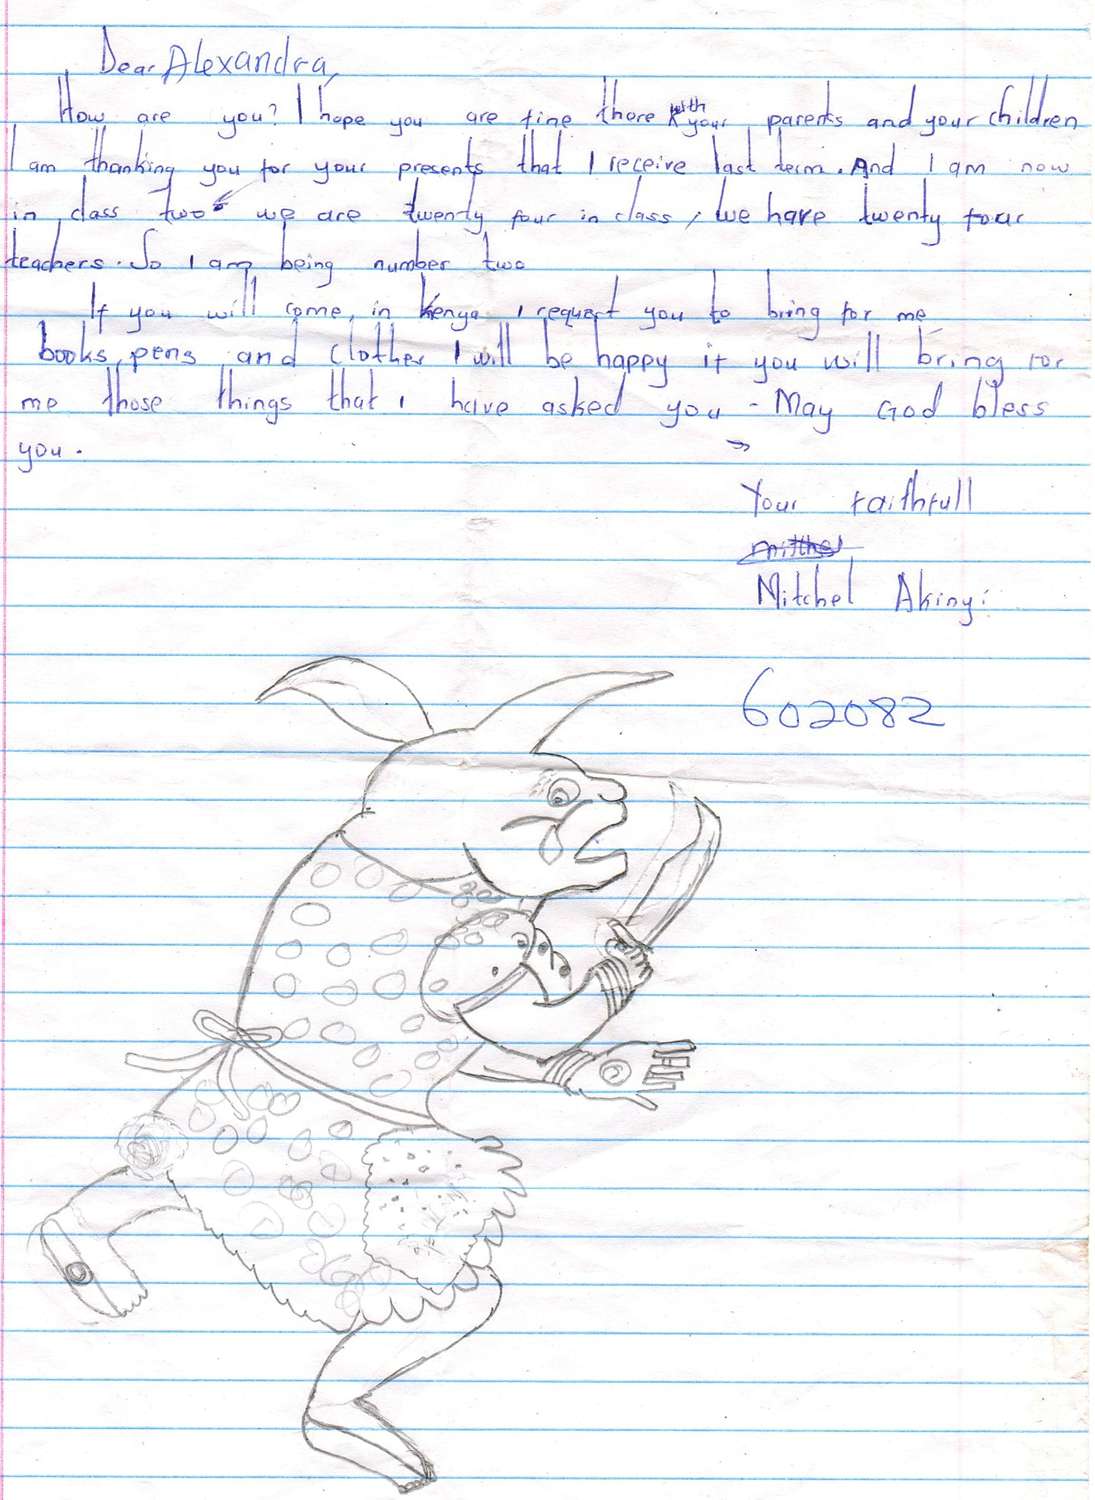 Dear Alexandra,
How are you? I hope you are fine there with your parents and your children
I am thanking you for your presents that I receive last term. And I am now
in class two we are twenty four in class, we have twenty four
teachers. So I am being number two
If you will come, in Kenya I request you to bring for me
books, pens and clothes I will be happy if you will bring for
me those things that I have asked you - May God bless
you.
Your faithfull
Mitchel Akinyi
602082